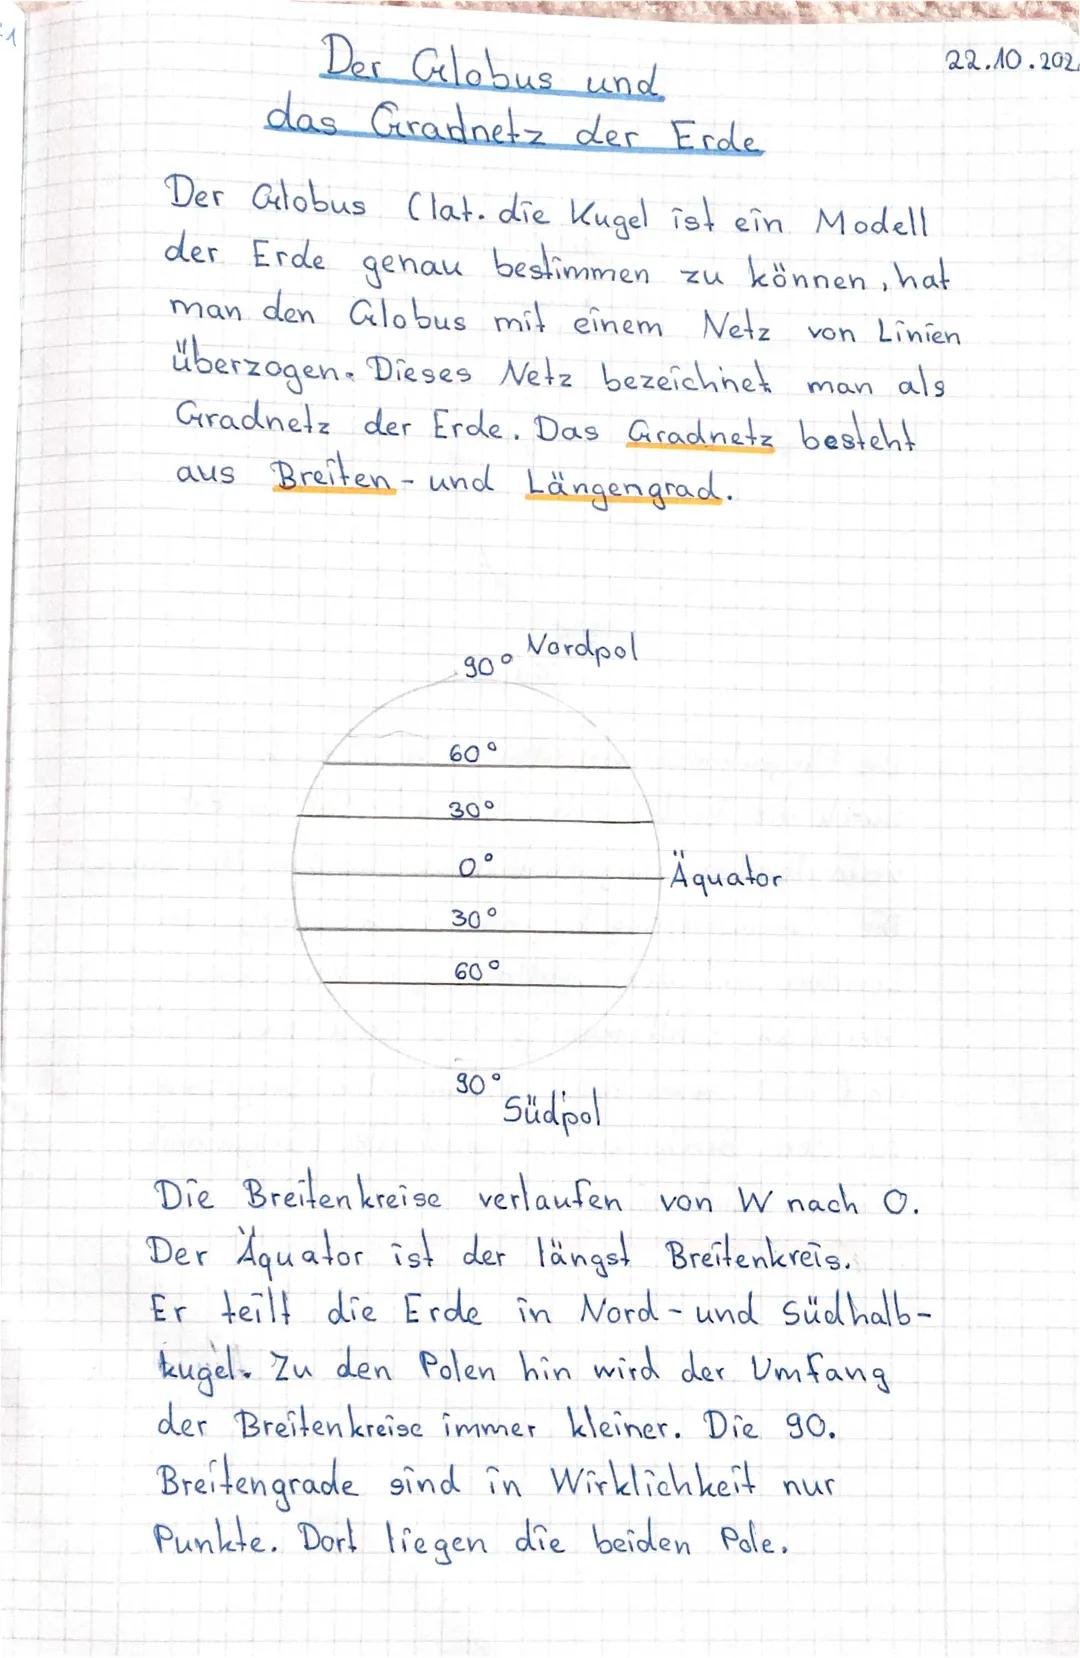 22.10.202
Der Globus und
das Gradnetz der Erde
Der Globus (lat. die Kugel ist ein Modell
der Erde genau bestimmen zu können, hat
man den Globus mit einem Netz von Linien
überzogen. Dieses Netz bezeichnet man als
Gradnetz der Erde. Das Gradnetz besteht
aus Breiten- und Längengrad.
90° Nordpol
60°
30°
0° Äquator
30°
60°
90°
Südpol
Die Breitenkreise verlaufen von W nach O.
Der Äquator ist der längst Breitenkreis.
Er teilt die Erde in Nord- und Südhalb-
kugel. Zu den Polen hin wird der Umfang
der Breitenkreise immer kleiner. Die 90.
Breitengrade sind in Wirklichkeit nur
Punkte. Dort liegen die beiden Pole.